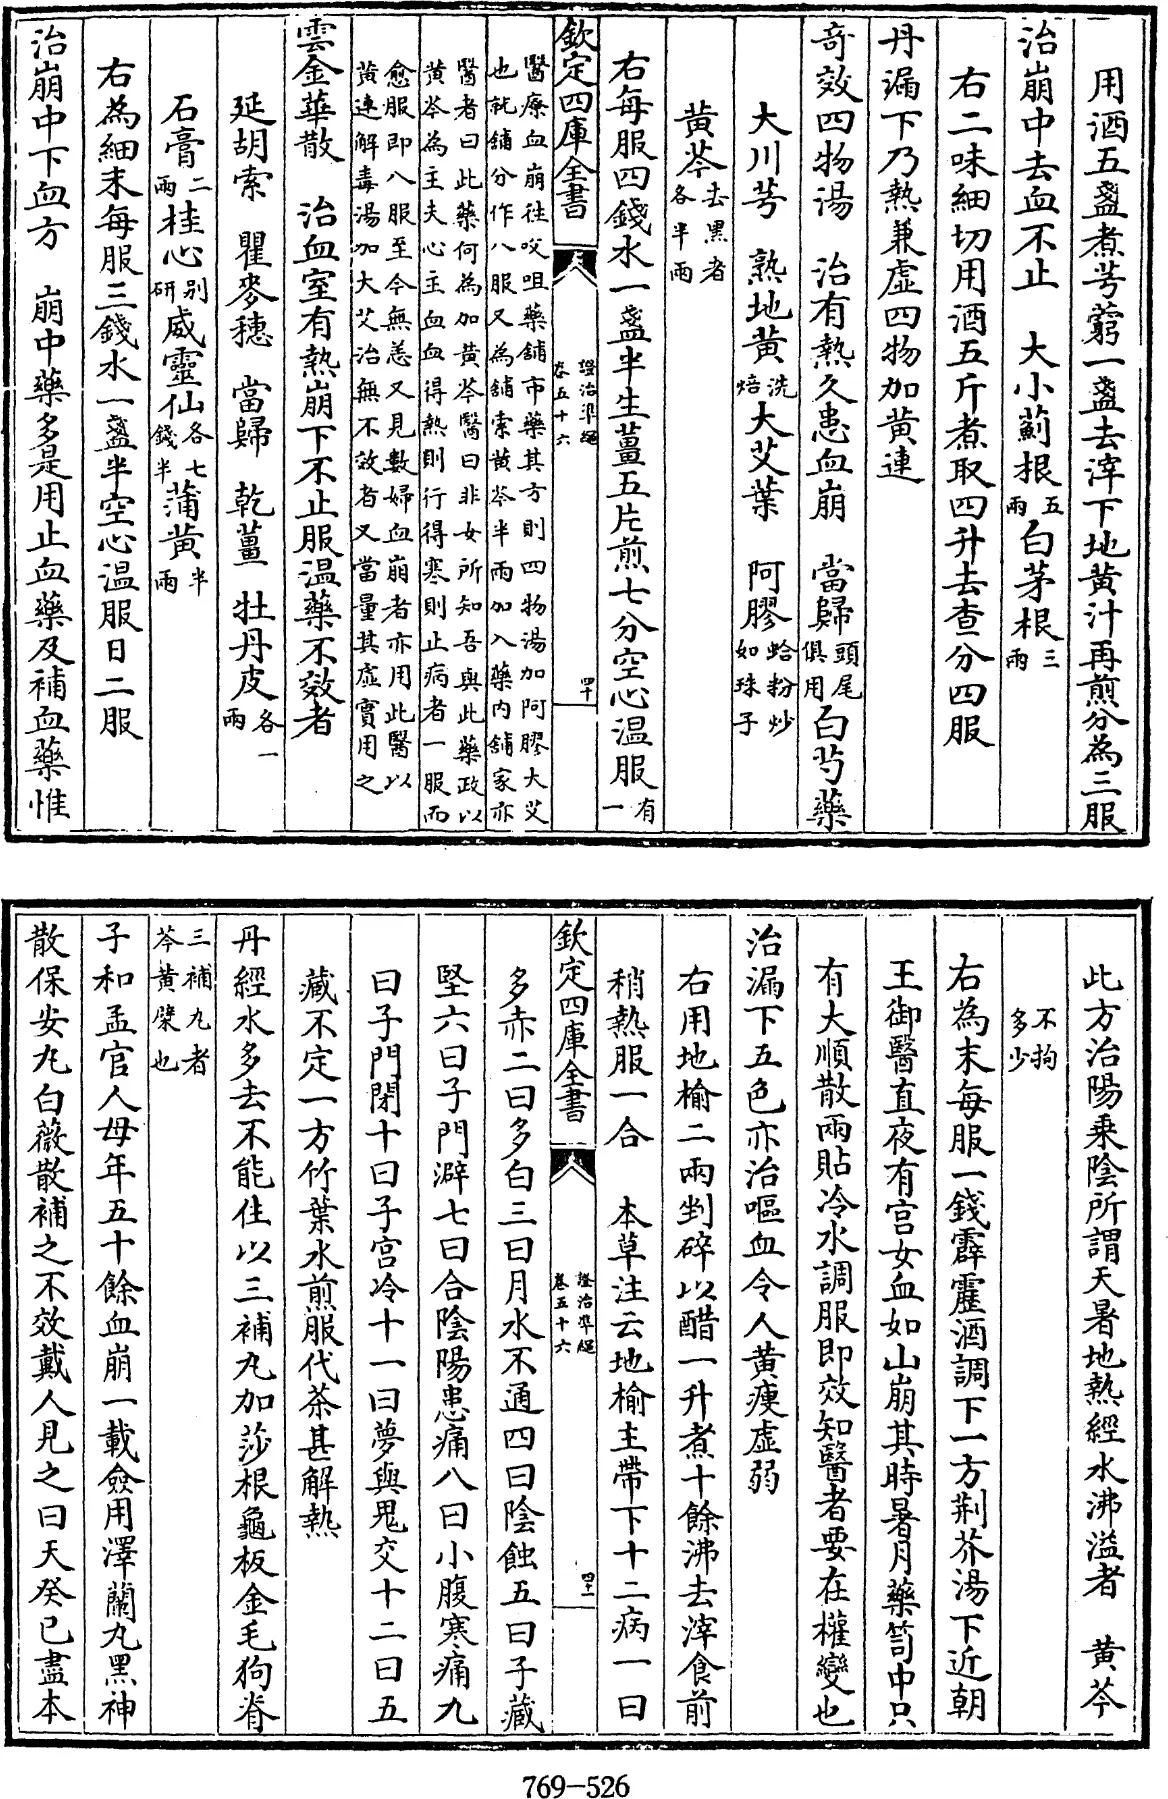 用酒五盞煮芎藭一盞去滓下地黄汁再煎分為三服
治崩中去血不止　大小薊根五兩白茅根三兩
右二味細切用酒五斤煮取四升去查分四服
丹漏下乃熱兼虚四物加黄連
竒效四物湯　治有熱久患血崩　當歸頭尾俱用白芍藥
大川芎　熟地黄洗焙大艾葉　阿膠蛤粉炒如珠子
黄芩去黑者各半兩
右每服四錢水一盞半生薑五片煎七分空心温服有一
欽定四庫全書　證治凖繩卷五十六　四十
醫療血崩往㕮咀藥舖市藥其方則四物湯加阿膠大艾
也就舖分作八服又為舖索黄芩半兩加入藥内舖家亦
醫者曰此藥何為加黄芩醫曰非女所知吾與此藥政以
黄芩為主夫心主血血得熱則行得寒則止病者一服而
愈服即八服至今無恙又見數婦血崩者亦用此醫以
黄連解毒湯加大艾治無不效者又當量其虚實用之
雲金華散　治血室有熱崩下不止服温藥不效者
延胡索　瞿麥穗　當歸　乾薑　牡丹皮各一兩
石膏二兩桂心别研威靈仙各七錢半蒲黄半兩
右為細末每服三錢水一盞半空心温服日二服
治崩中下血方　崩中藥多是用止血藥及補血藥惟
此方治陽乗陰所謂天暑地熱經水沸溢者　黄芩
不拘多少
右為末每服一錢霹靂酒調下一方荆芥湯下近朝
王御醫直夜有宫女血如山崩其時暑月藥笥中只
有大順散兩貼冷水調服即效知醫者要在權變也
治漏下五色亦治嘔血令人黄瘦虚弱
右用地榆二兩剉碎以醋一升煮十餘沸去滓食前
稍熱服一合　本草注云地榆主帶下十二病一曰
欽定四庫全書　證治凖繩卷五十六　四十一
多赤二曰多白三曰月水不通四曰陰蝕五曰子藏
堅六曰子門澼七曰合陰陽患痛八曰小腹寒痛九
曰子門閉十曰子宫冷十一曰夢與鬼交十二曰五
藏不定一方竹葉水煎服代茶甚解熱
丹經水多去不能住以三補丸加莎根龜板金毛狗脊
三補丸者芩黄檗也
子和孟官人母年五十餘血崩一載僉用澤蘭丸黑神
散保安丸白薇散補之不效戴人見之曰天癸已盡本
769-526